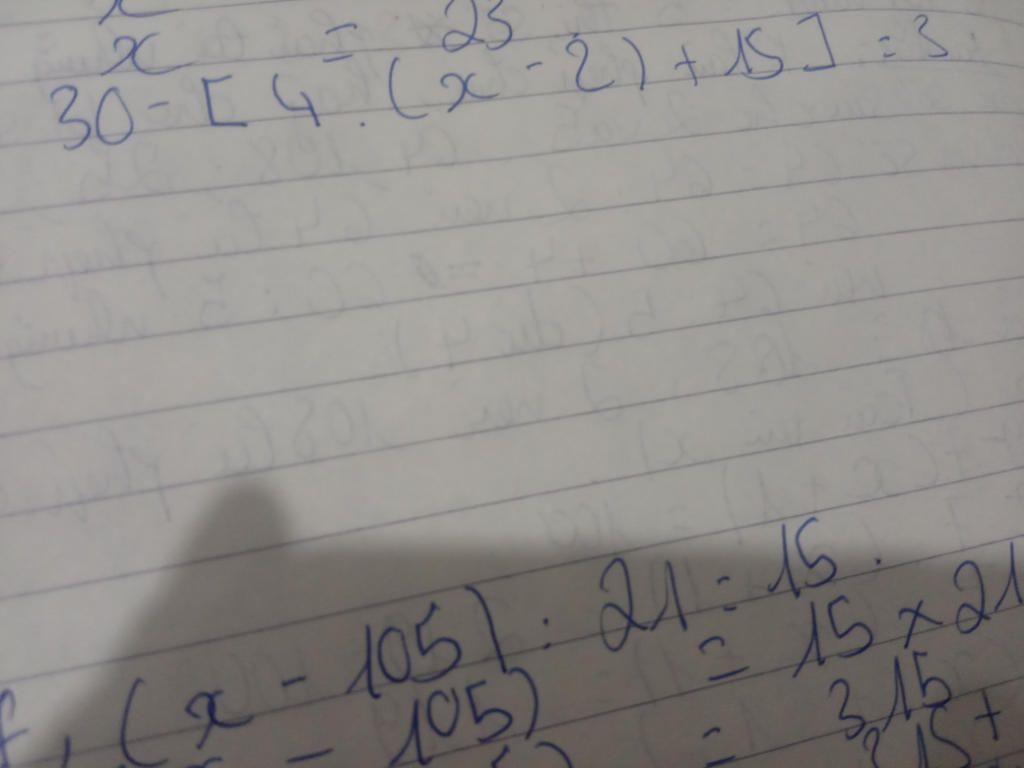 x = 23
30 - [ 4 . ( x - 2 ) + 15 ] = 3
( x - 105 ) : 21 = 15 .
- 105 ) = 15 × 21
= 315
315 +